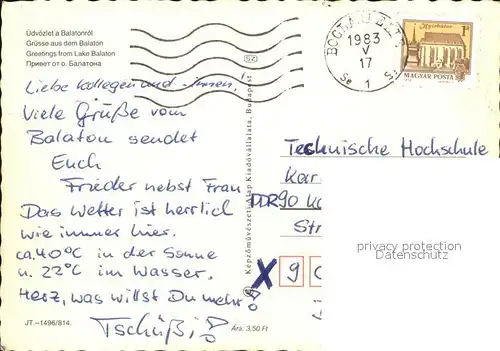 Üdvözlet a Balatonról
Grüsse aus dem Balaton
Greetings from Lake Balaton
Привет от о. Балатона
Liebe Kollegen und -innen,
Viele Grüße vom
Balaton sendet
Euch
Frieder nebst Frau
Das Wetter ist herrlich
wie immer hier.
ca. 40°C in der Sonne
u. 22°C im Wasser.
Herz, was willst Du mehr!
Tschüßi!
JT.–1496/814.
Ára: 3,50 Ft
Képzőművészeti Alap Kiadóvállalata, Budapest
1983
V
17
1
MAGYAR POSTA
Technische Hochschule
Kar
DDR 90 Ka
Str
X 9
privacy protection
Datenschutz